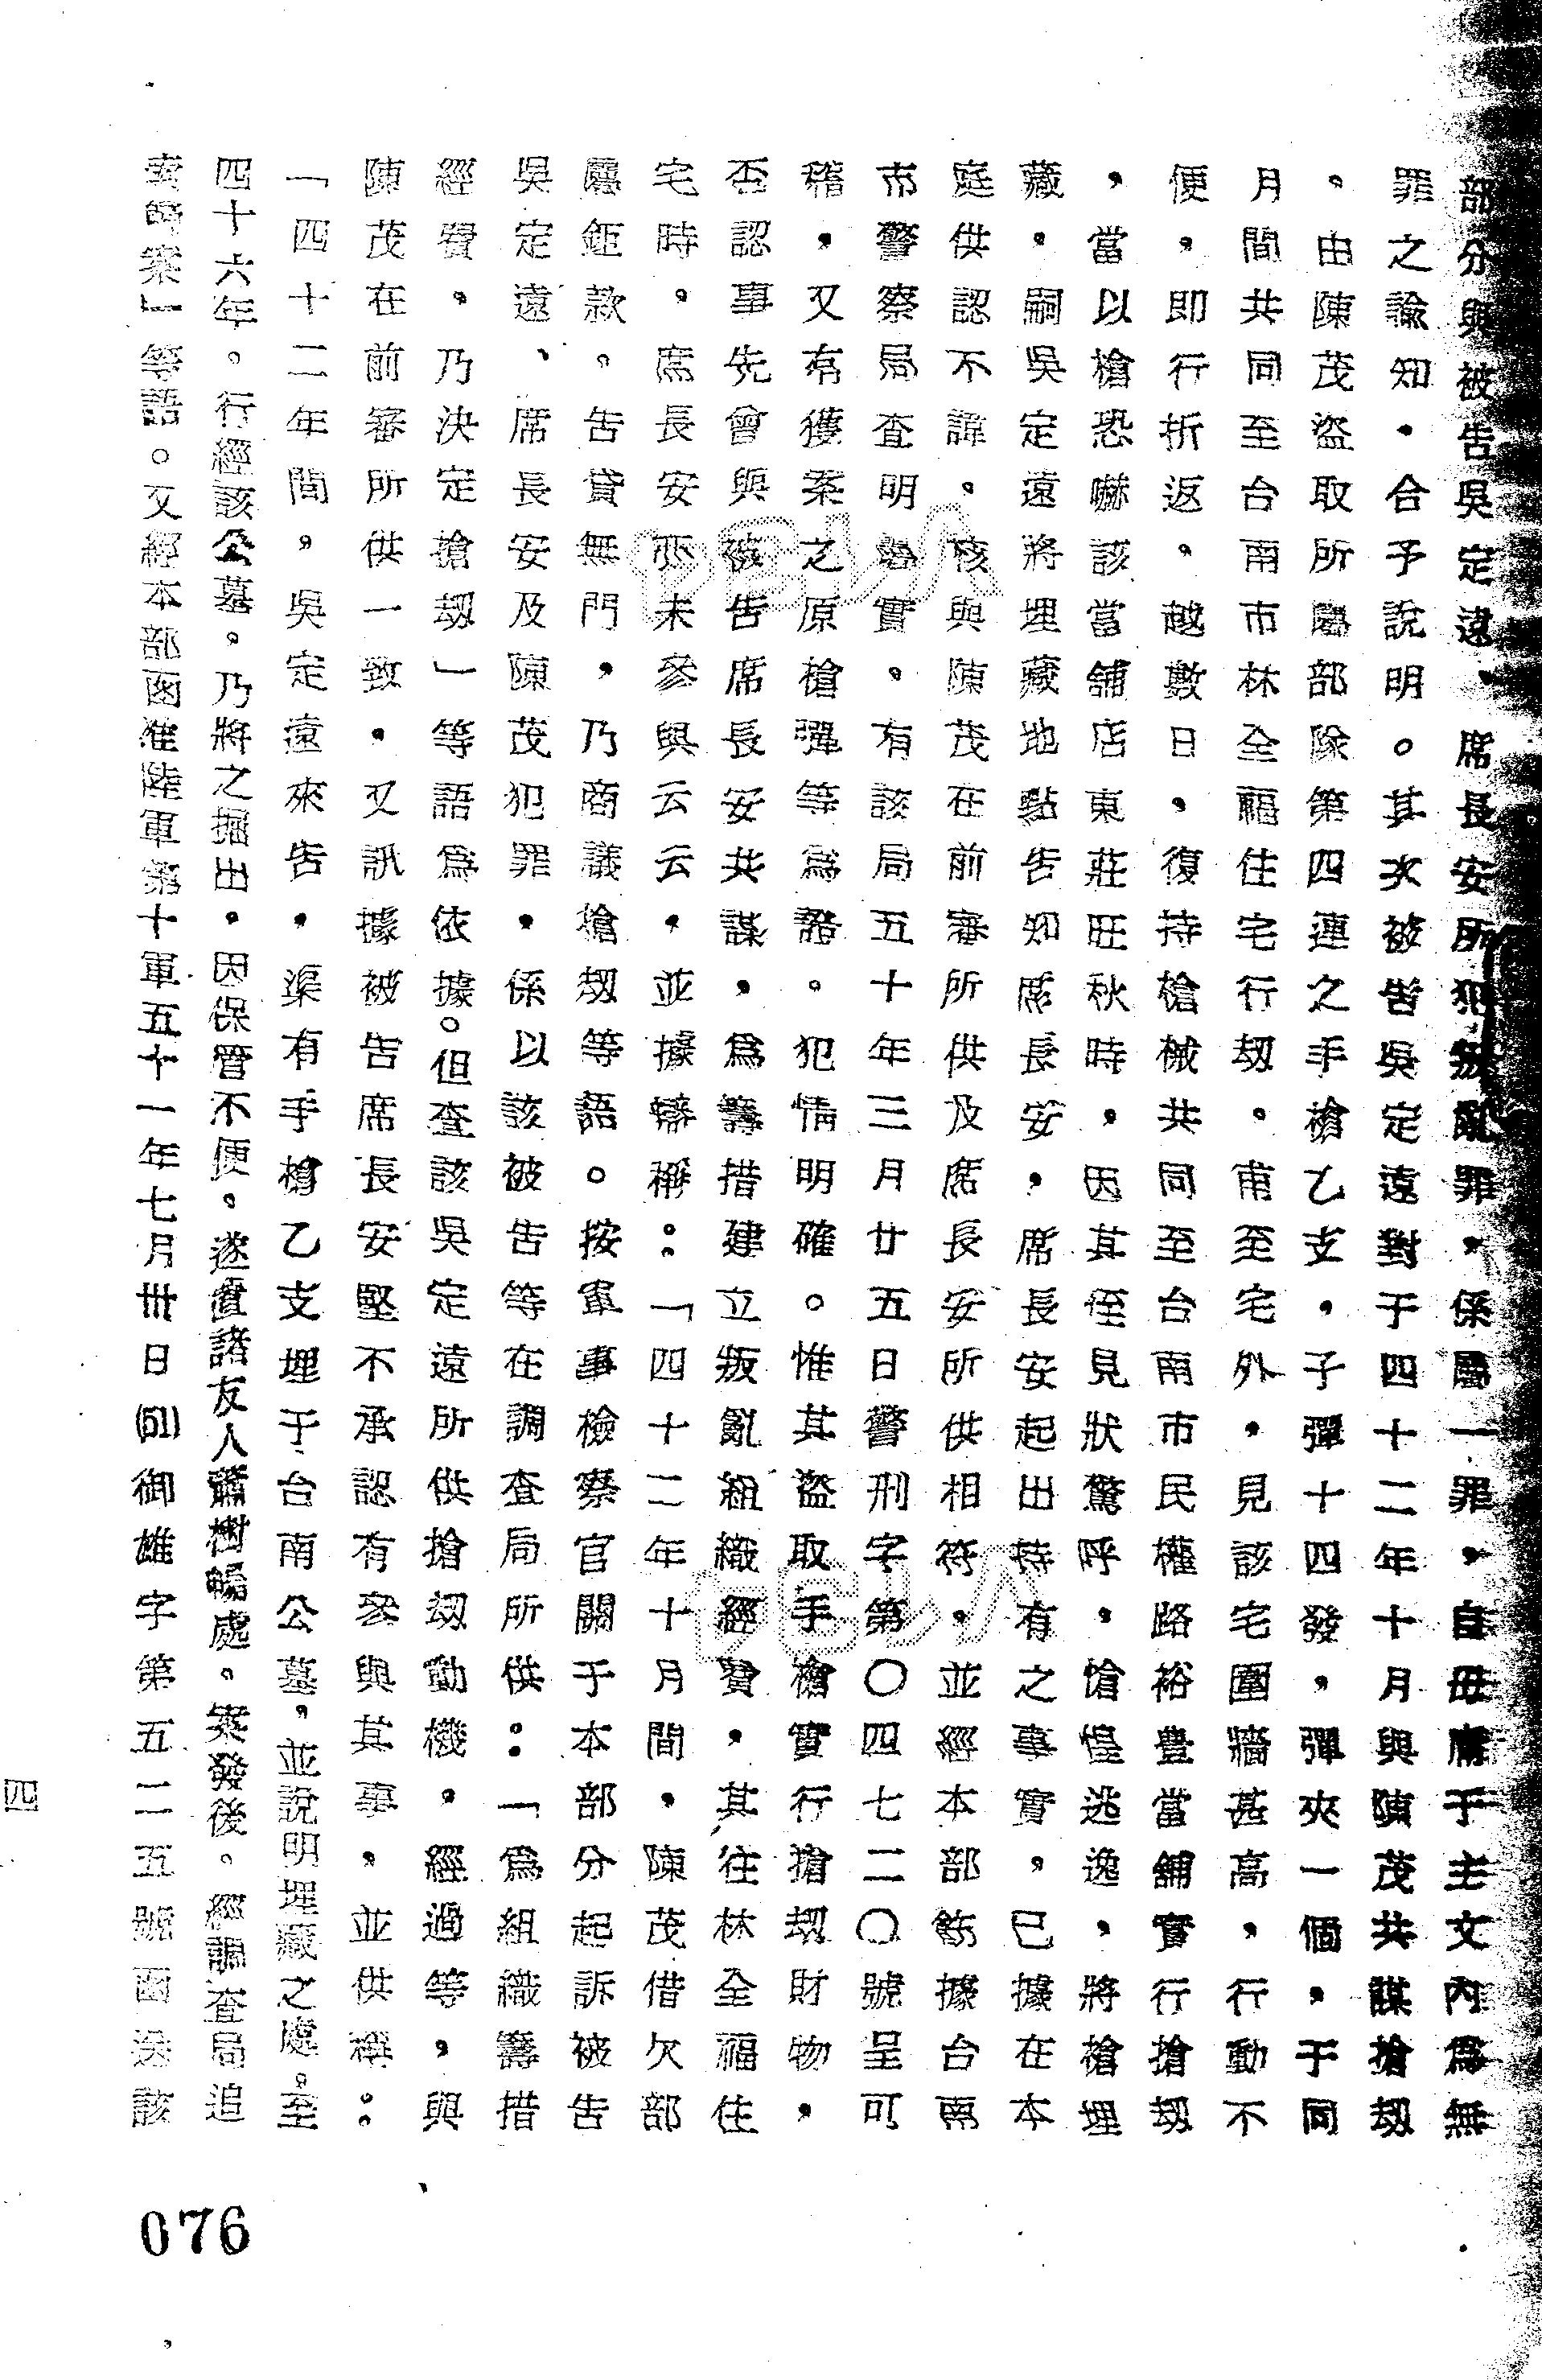 部分與被告吳定遠、席長安所犯叛亂罪,係屬一罪,自毋庸于主文內為無
罪之諭知,合予說明。其次被告吳定遠對于四十二年十月與陳茂共謀搶劫
。由陳茂盜取所屬部隊第四連之手槍乙支,子彈十四發,彈夾一個,于同
月間共同至台南市林全福住宅行劫。甫至宅外,見該宅圍牆甚高,行動不
便,即行折返。越數日,復持槍械共同至台南市民權路裕豊當舖實行搶劫
,當以槍恐嚇該當舖店東莊旺秋時,因其侄見狀驚呼,愴惶逃逸,將槍埋
藏,嗣吳定遠將埋藏地點告知席長安,席長安起出持有之事實,已據在本
庭供認不諱。核與陳茂在前審所供及席長安所供相符,並經本部飭據台南
市警察局查明屬實。有該局五十年三月廿五日警刑字第〇四七二〇號呈可
稽,又有獲案之原槍彈等為證。犯情明確。惟其盜取手槍實行搶劫財物,
否認事先曾與被告席長安共謀,為籌措建立叛亂組織經費,其往林全福住
宅時。席長安亦未參與云云,並據辯稱:「四十二年十月間,陳茂借欠部
屬鉅款。告貸無門,乃商議搶劫等語。按軍事檢察官關于本部分起訴被告
吳定遠、席長安及陳茂犯罪,係以該被告等在調查局所供:「為組織籌措
經費。乃決定搶劫」等語為依據。但查該吳定遠所供搶劫動機。經過等,與
陳茂在前審所供一致,又訊據被告席長安堅不承認有參與其事,並供稱:
「四十二年間,吳定遠來告,渠有手槍乙支埋于台南公墓,並說明埋藏之處。至
四十六年。行經該公墓。乃將之掘出,因保管不便。遂置諸友人蕭樹暢處。案發後。經調查局追
」等語。又經本部函准陸軍第十軍五十一年七月卅日(51)御雄字第五二二五號函送該
四
076